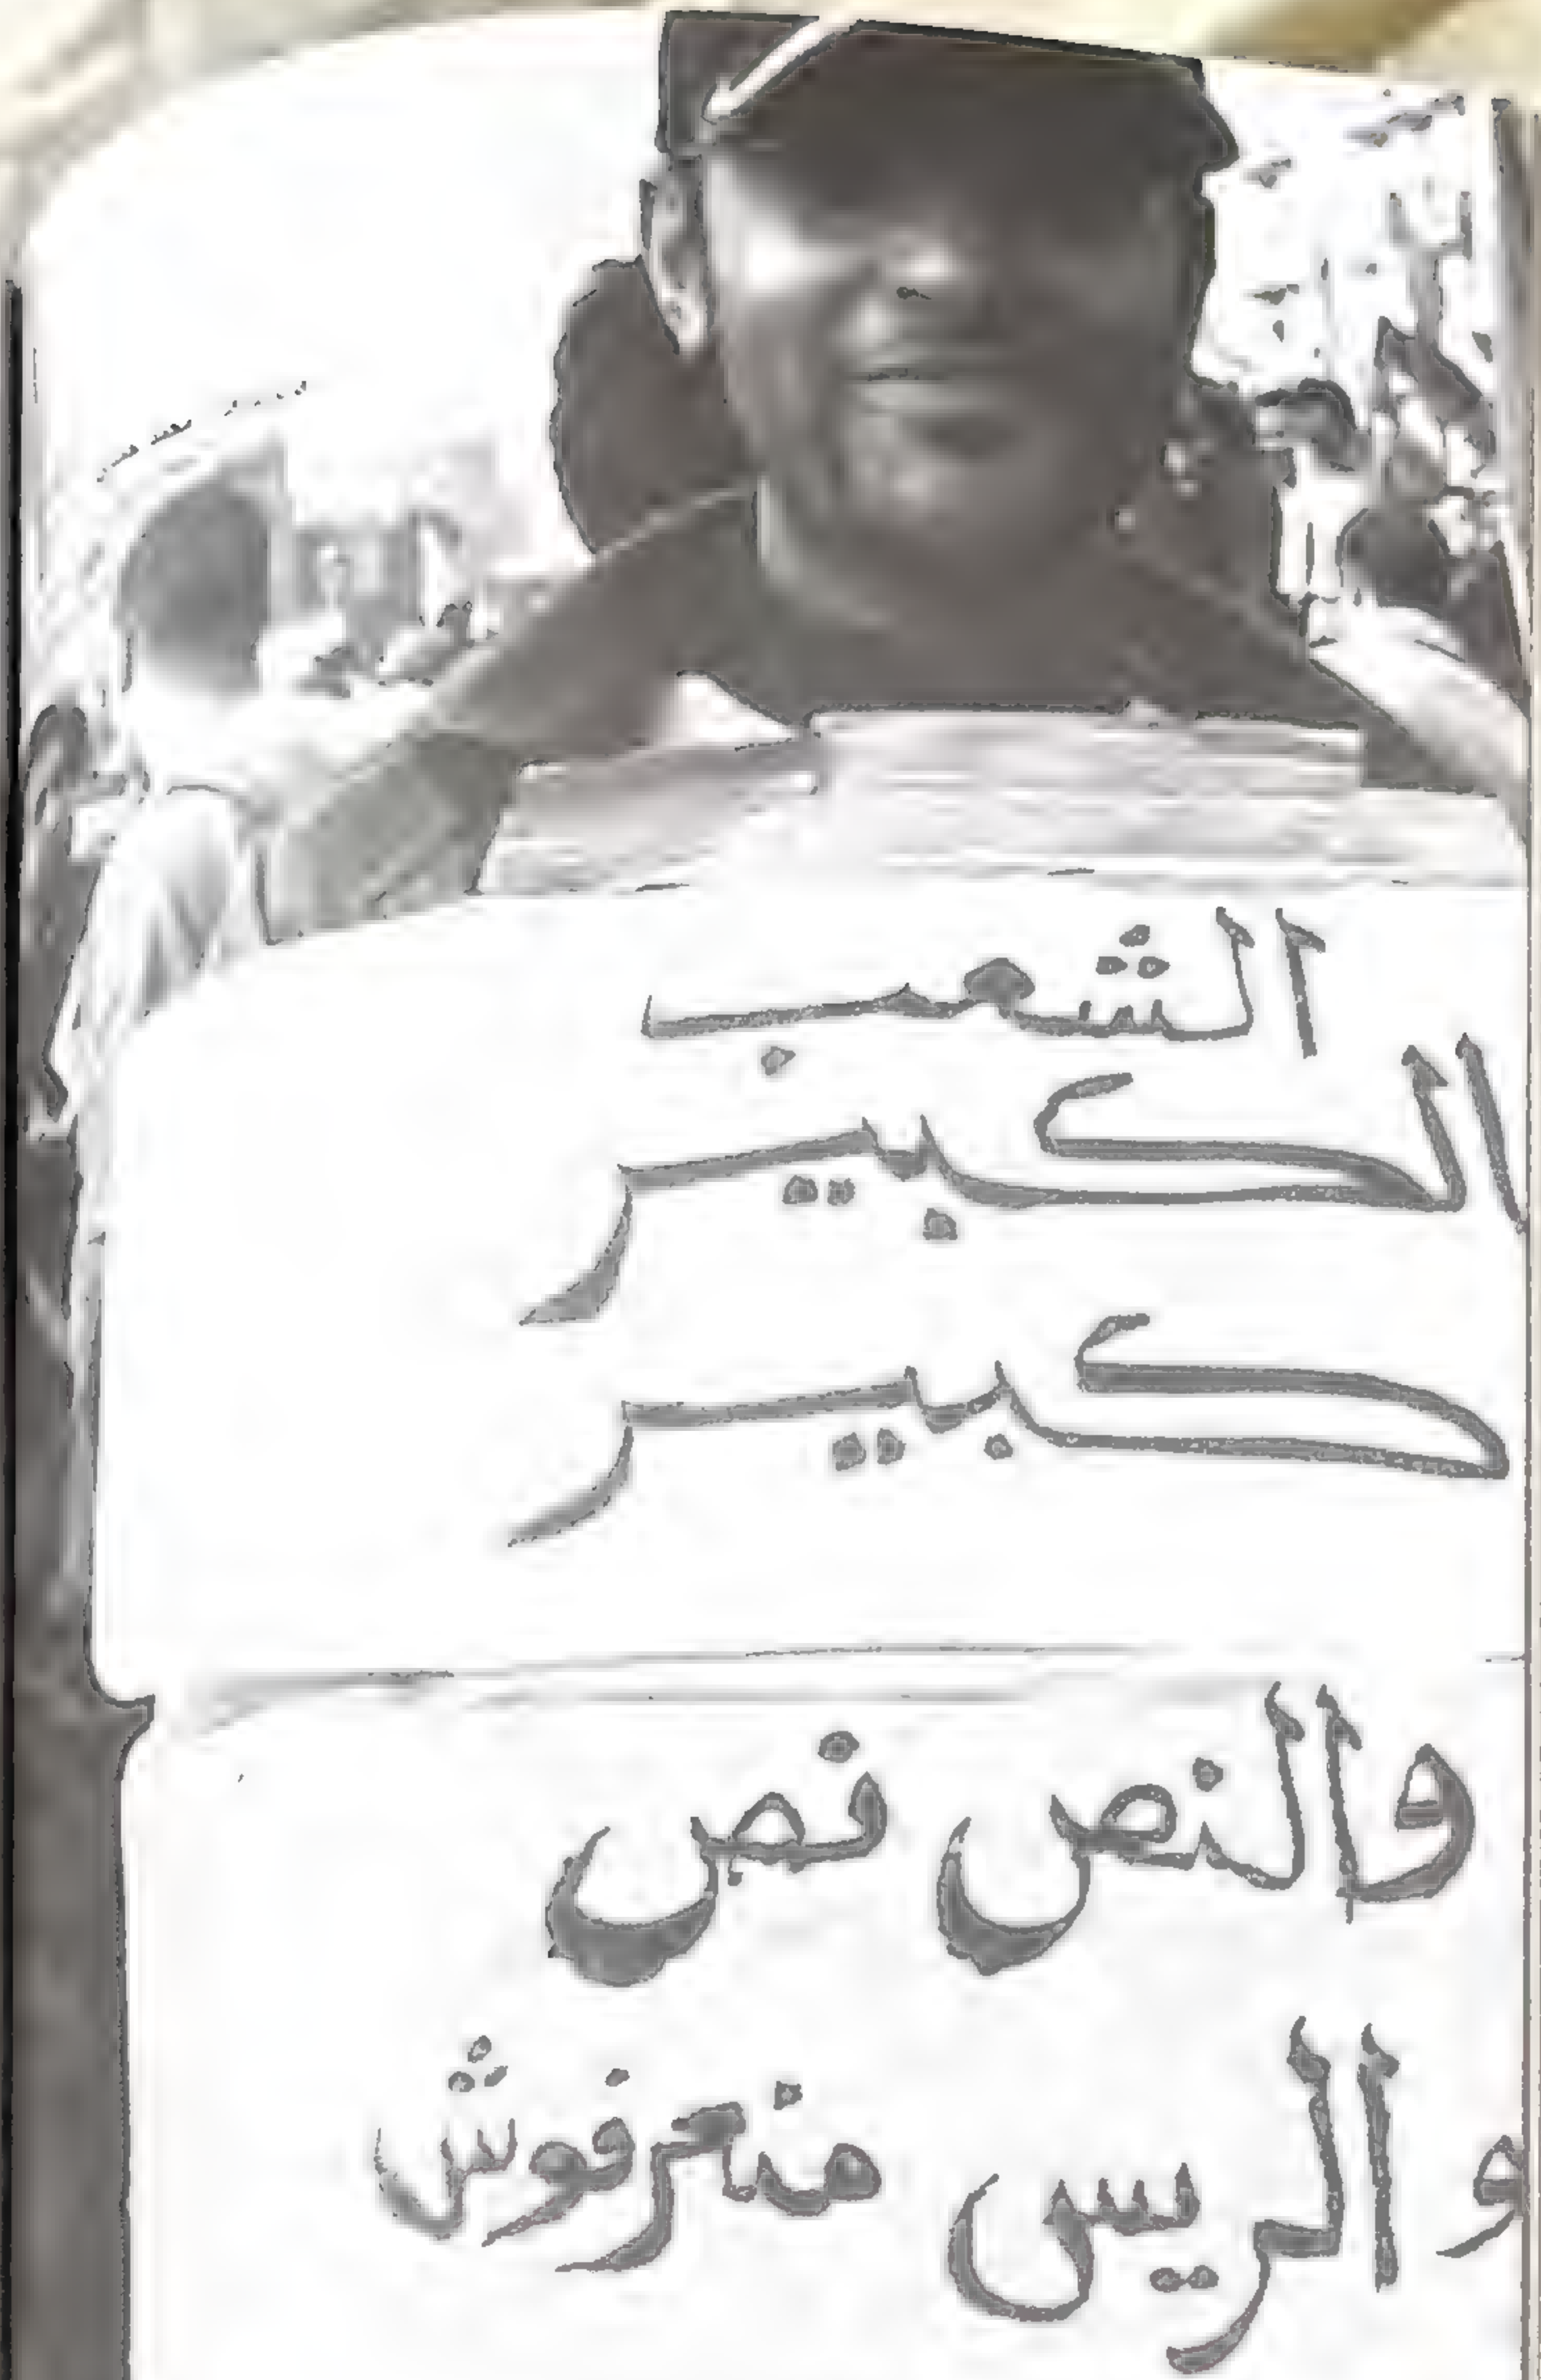 الشعب
الكبير
كبير
والنص نص
و الريس منعرفوش